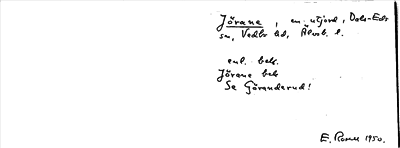 Jörane, en utjord, Dals-Eds
sn, Vedbo hd, Älvsb. l.
enl. bek.
Jörane bek
Se Göranderud!
E. Rosell 1950.